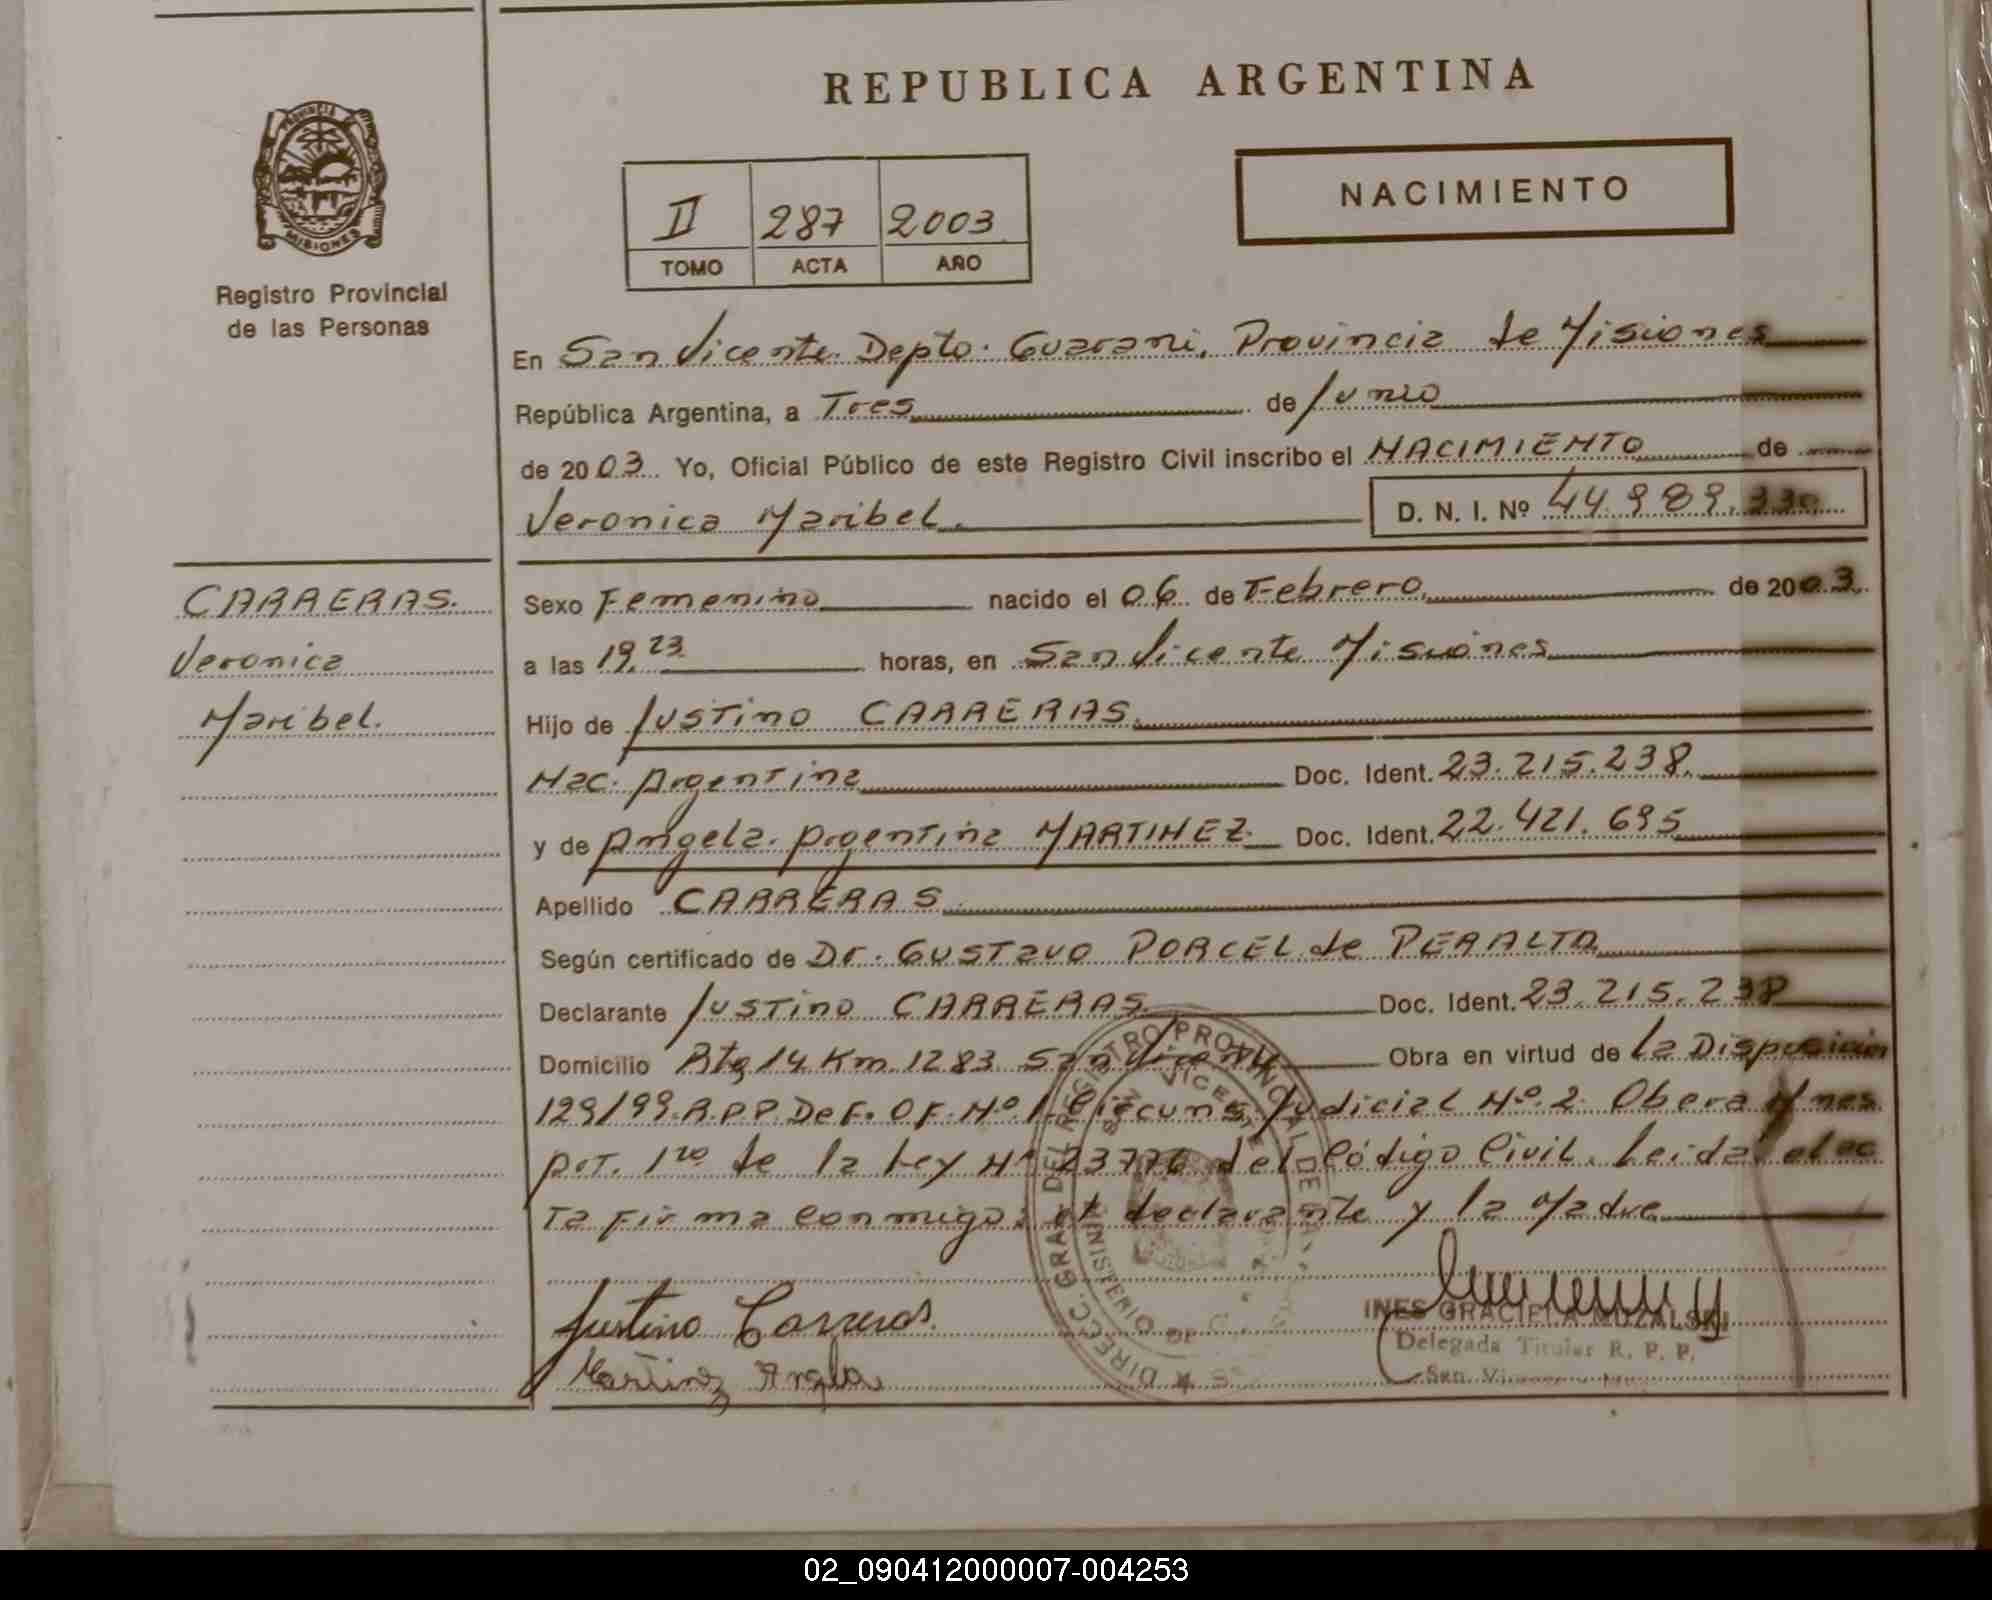 REPUBLICA ARGENTINA
PROVINCIA
MISIONES
Registro Provincial
de las Personas
II 287 2003
TOMO ACTA AÑO
NACIMIENTO
En San Vicente Depto. Guarani, Provincia de Misiones
República Argentina, a Tres de Junio
de 2003. Yo, Oficial Público de este Registro Civil inscribo el NACIMIENTO de
Veronica Maribel. D. N. I. Nº 44.989.330
CARRERAS.
Veronica
Maribel.
Sexo Femenino nacido el 06 de Febrero de 2003.
a las 19,23 horas, en San Vicente Misiones
Hijo de Justino CARRERAS.
Nac. Argentina Doc. Ident. 23.215.238.
y de Angela Argentina MARTINEZ Doc. Ident. 22.421.695
Apellido CARRERAS
Según certificado de Dr. Gustavo PORCEL de PERALTA
Declarante Justino CARRERAS Doc. Ident. 23.215.238
Domicilio Rta 14 Km 1283 San Vicente Obra en virtud de la Disposición
129/99 R.P.P. DeF. OF. Nº 1 Circuns. Judicial Nº 2 Obera Mnes
Art. 1ro de la Ley Nº 23776 del Código Civil. Leida el ac
Ta firma conmigo: el declarante y la Madre
Justino Carreras
Martinez Angela
DIRECC. GRAL. DEL REGISTRO PROVINCIAL DE
MINISTERIO DE
SAN VICENTE
INES GRACIELA MOZALSKI
Delegada Titular R. P. P.
San Vi
02_090412000007-004253